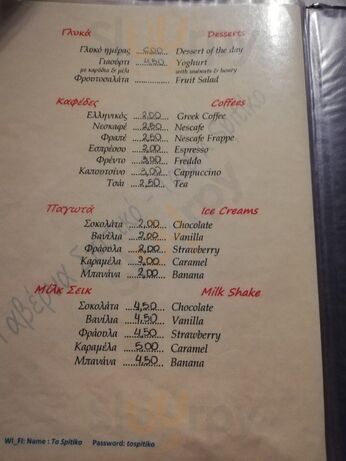 Γλυκά Desserts
Γλυκό ημέρας 6,00 Dessert of the day
Γιαούρτι 4,50 Yoghurt
με καρύδια & μέλι with walnuts & honey
Φρουτοσαλάτα Fruit Salad
Καφέδες Coffees
Ελληνικός 2,00 Greek Coffee
Νεσκαφέ 2,50 Nescafe
Φραπέ 2,50 Nescafe Frappe
Εσπρέσσο 2,00 Espresso
Φρέντο 3,00 Freddo
Καπουτσίνο 3,00 Cappuccino
Τσάι 2,50 Tea
Παγωτά Ice Creams
Σοκολάτα 2,00 Chocolate
Βανίλια 2,00 Vanilla
Φράουλα 2,00 Strawberry
Καραμέλα 2,00 Caramel
Μπανάνα 2,00 Banana
Μίλκ Σεικ Milk Shake
Σοκολάτα 4,50 Chocolate
Βανίλια 4,50 Vanilla
Φράουλα 4,50 Strawberry
Καραμέλα 5,00 Caramel
Μπανάνα 4,50 Banana
Wi_Fi: Name : To Spitiko Password: tospitiko